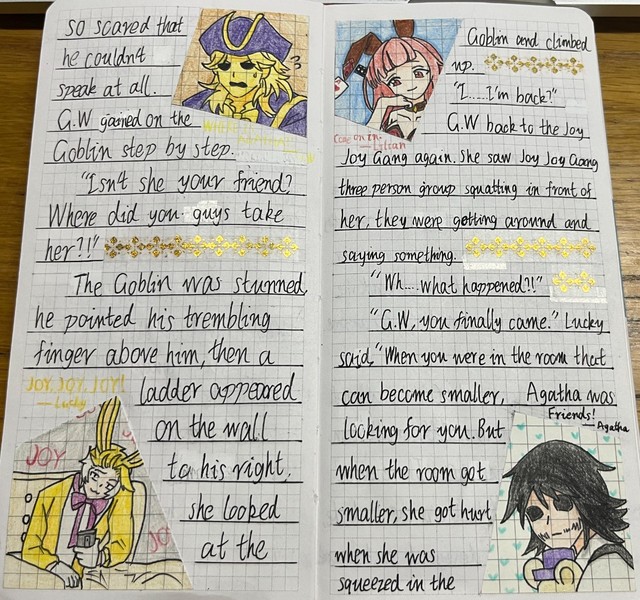 so scared that
he couldn't
speak at all.
G.W gained on the
Goblin step by step.
"Isn't she your friend?
Where did you guys take
her?!"
The Goblin was stunned,
he pointed his trembling
finger above him, then a
JOY, JOY, JOY!
—Lucky
JOY
JO
ladder appeared
on the wall
to his right,
she looked
at the
Goblin and climbed
up.
"I......I'm back?"
Come on in.
—Lilian
G.W back to the Joy
Joy Gang again. She saw Joy Joy Gang
three person group squatting in front of
her, they were getting around and
saying something.
"Wh....what happened?!"
"G.W, you finally came." Lucky
said, "When you were in the room that
can become smaller, Agatha was
Friends!
—Agatha
looking for you. But
when the room got
smaller, she got hurt
when she was
squeezed in the